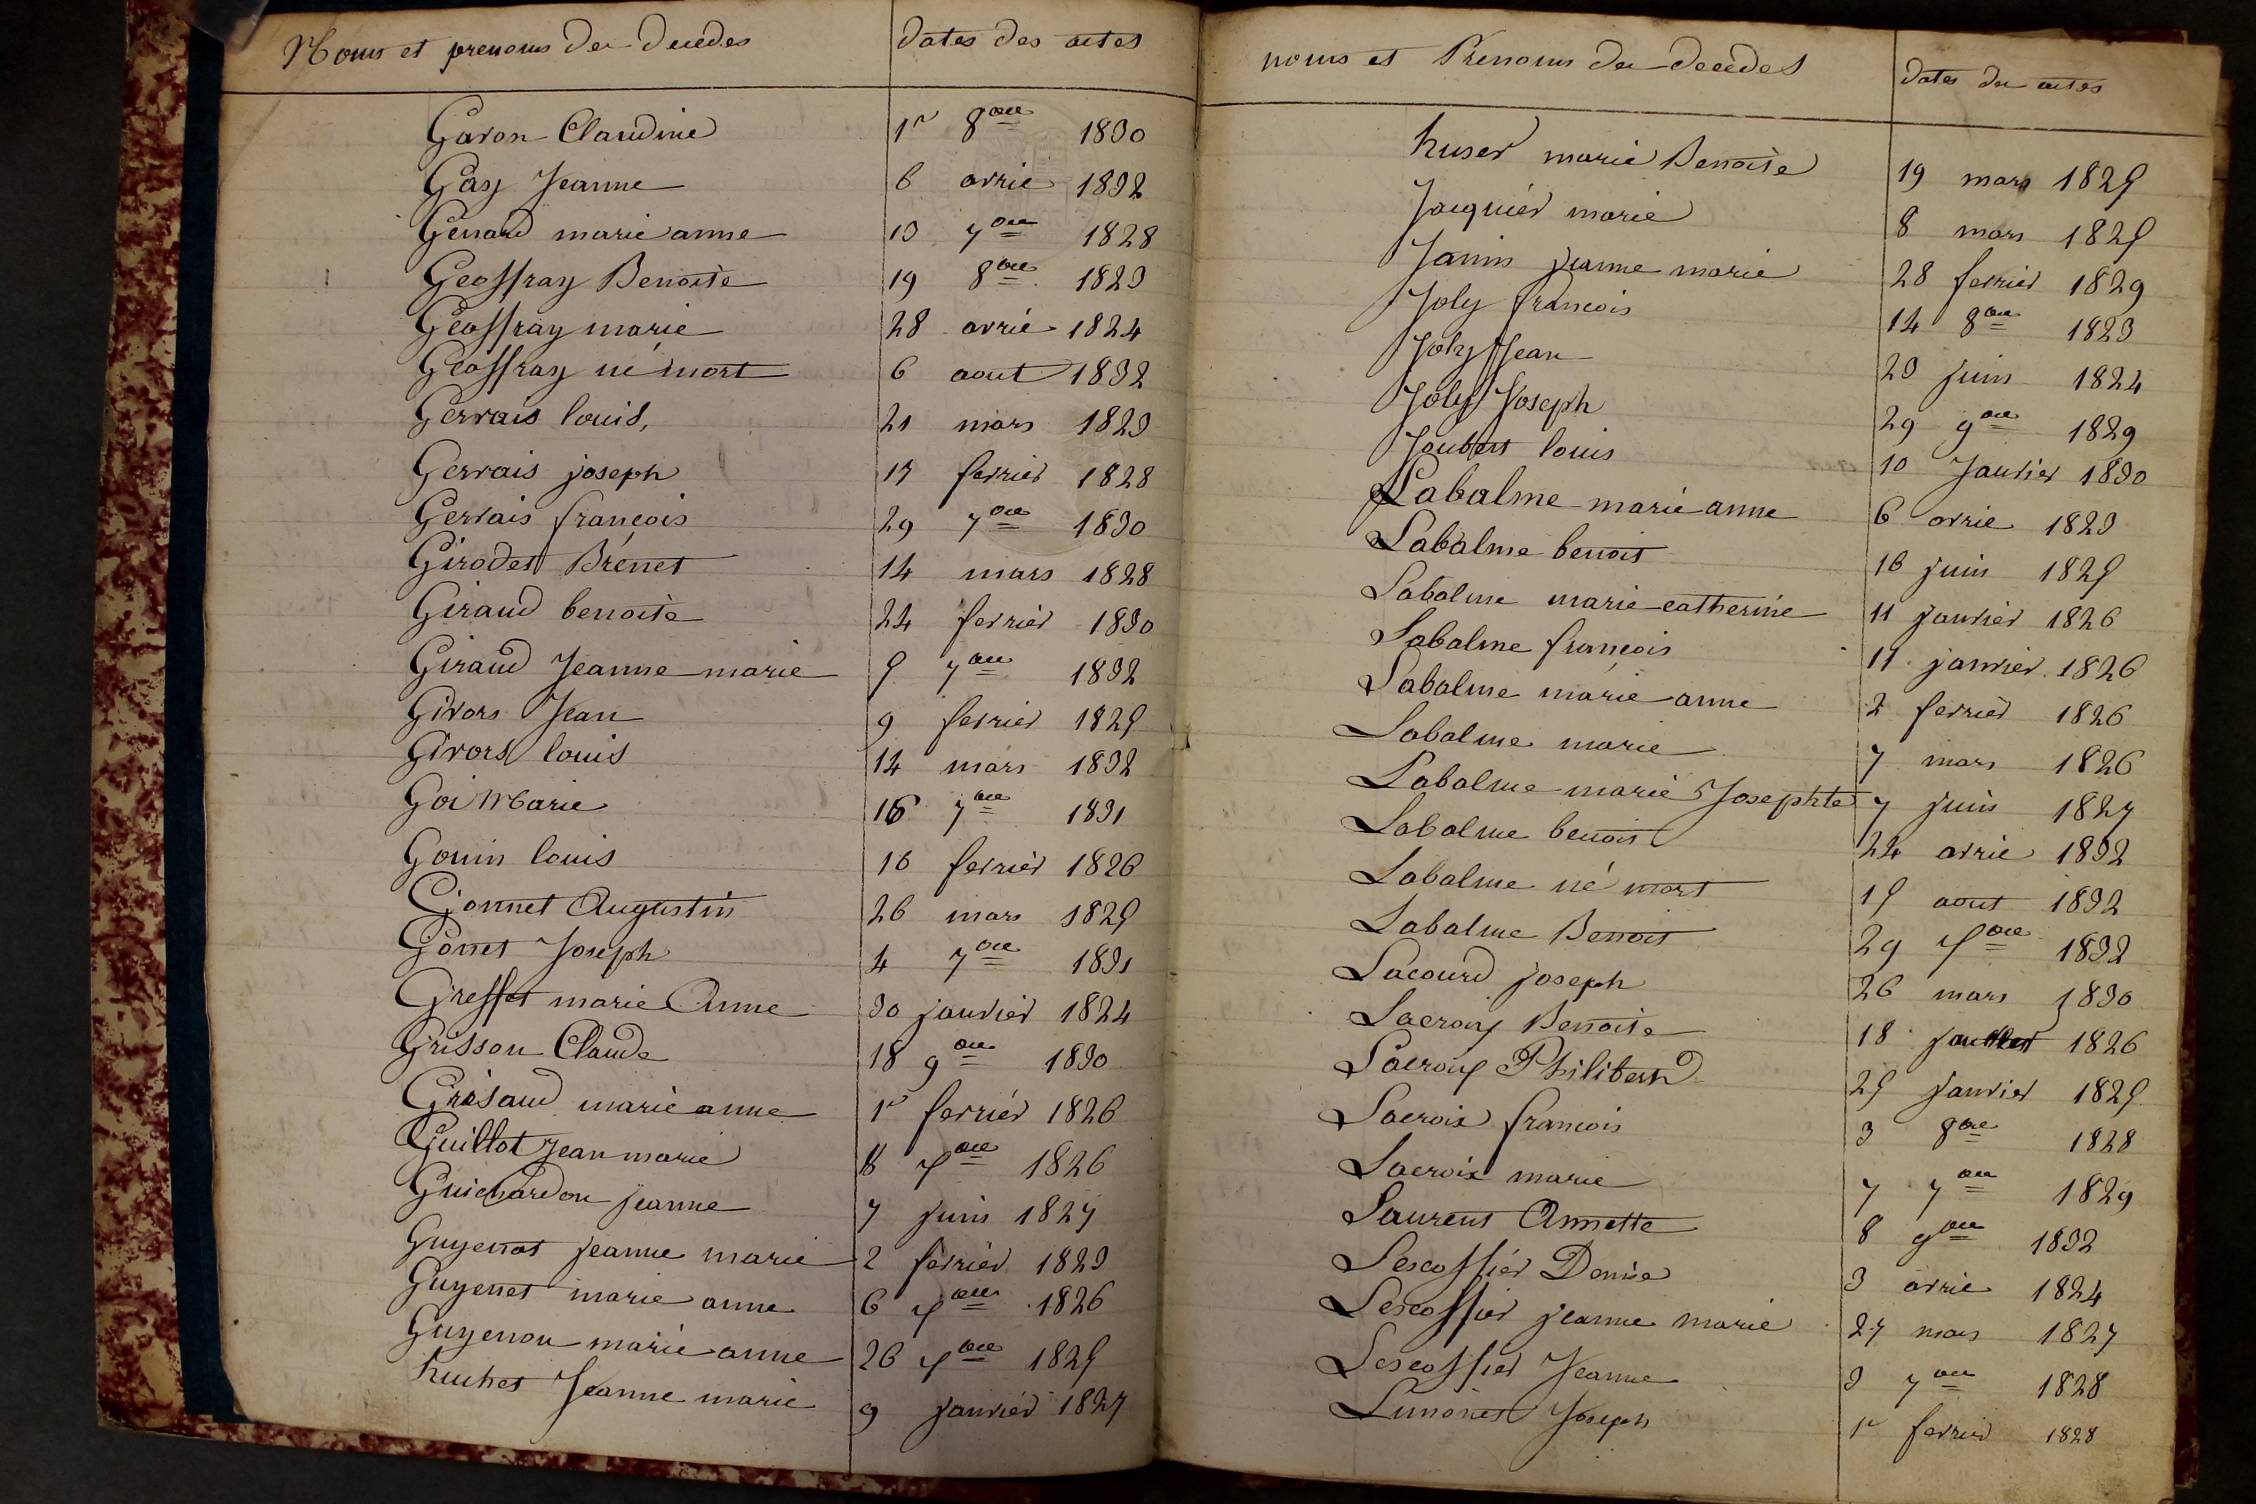 Noms et prenoms des decedes dates des actes
Garon Claudine 1r 8bre 1830
Gay Jeanne 6 avril 1832
Genard marie anne 13 7bre 1828
Geoffray Benoite 19 8bre 1823
Geoffray marie 28 avril 1824
Geoffray né mort 6 aout 1832
Gervais louis, 21 mars 1823
Gervais joseph fevrier 1828
Gervais françois 29 7bre 1830
Girodet Brénet 14 mars 1828
Giraud benoite 24 fevrier 1830
Giraud Jeanne marie 5 7bre 1832
Givors Jean 9 fevrier 1825
Givors louis 14 mars 1832
Goi Marie 16 7bre 1831
Gouin louis 16 fevrier 1826
Gonnet Augustin 26 mars 1825
Gonet Joseph 4 7bre 1831
Greffet marie Anne 30 janvier 1824
Grisson Claude 18 9bre 1830
Grisaud marie anne 1r fevrier 1826
Guillot jean marie 1826
Guichardon jeanne 7 juin 1827
Guyenot jeanne marie 2 fevrier 1823
Guyennet marie anne 6 1826
Guyenon marie anne 26 1825
huchet Jeanne marie 9 janvier 1827
noms et Prenoms des decédes dates des actes
huser marie Benoite 19 mars 1825
Jacquier marie 8 mars 1825
Janin jeanne marie 28 fevrier 1829
Joly francois 14 8bre 1823
Joly Jean 23 juin 1824
Joly Joseph 29 9bre 1829
Joubert louis 10 Janvier 1830
Labalme marie anne 6 avril 1823
Labalme benoit 16 juin 1825
Labalme marie catherine 11 janvier 1826
Labalme françois 11 janvier 1826
Labalme marie anne 2 fevrier 1826
Labalme marie 7 mars 1826
Labalme marie Josephte 7 juin 1827
Labalme benoit 24 avril 1832
Labalme né mort 15 aout 1832
Labalme Benoit 29 1832
Lacourd joseph 26 mars 1830
Lacroix Benoite 18 1826
Lacroix Philibert 25 janvier 1825
Lacroix francois 3 8bre 1828
Lacroix marie 7 7bre 1829
Laurent Annette 8 9bre 1832
Lescoffier Denise 3 avril 1824
Lescoffier jeanne marie 27 mars 1827
Lescoffier Jeanne 3 7bre 1828
Limonet Joseph 1r fevrier 1828